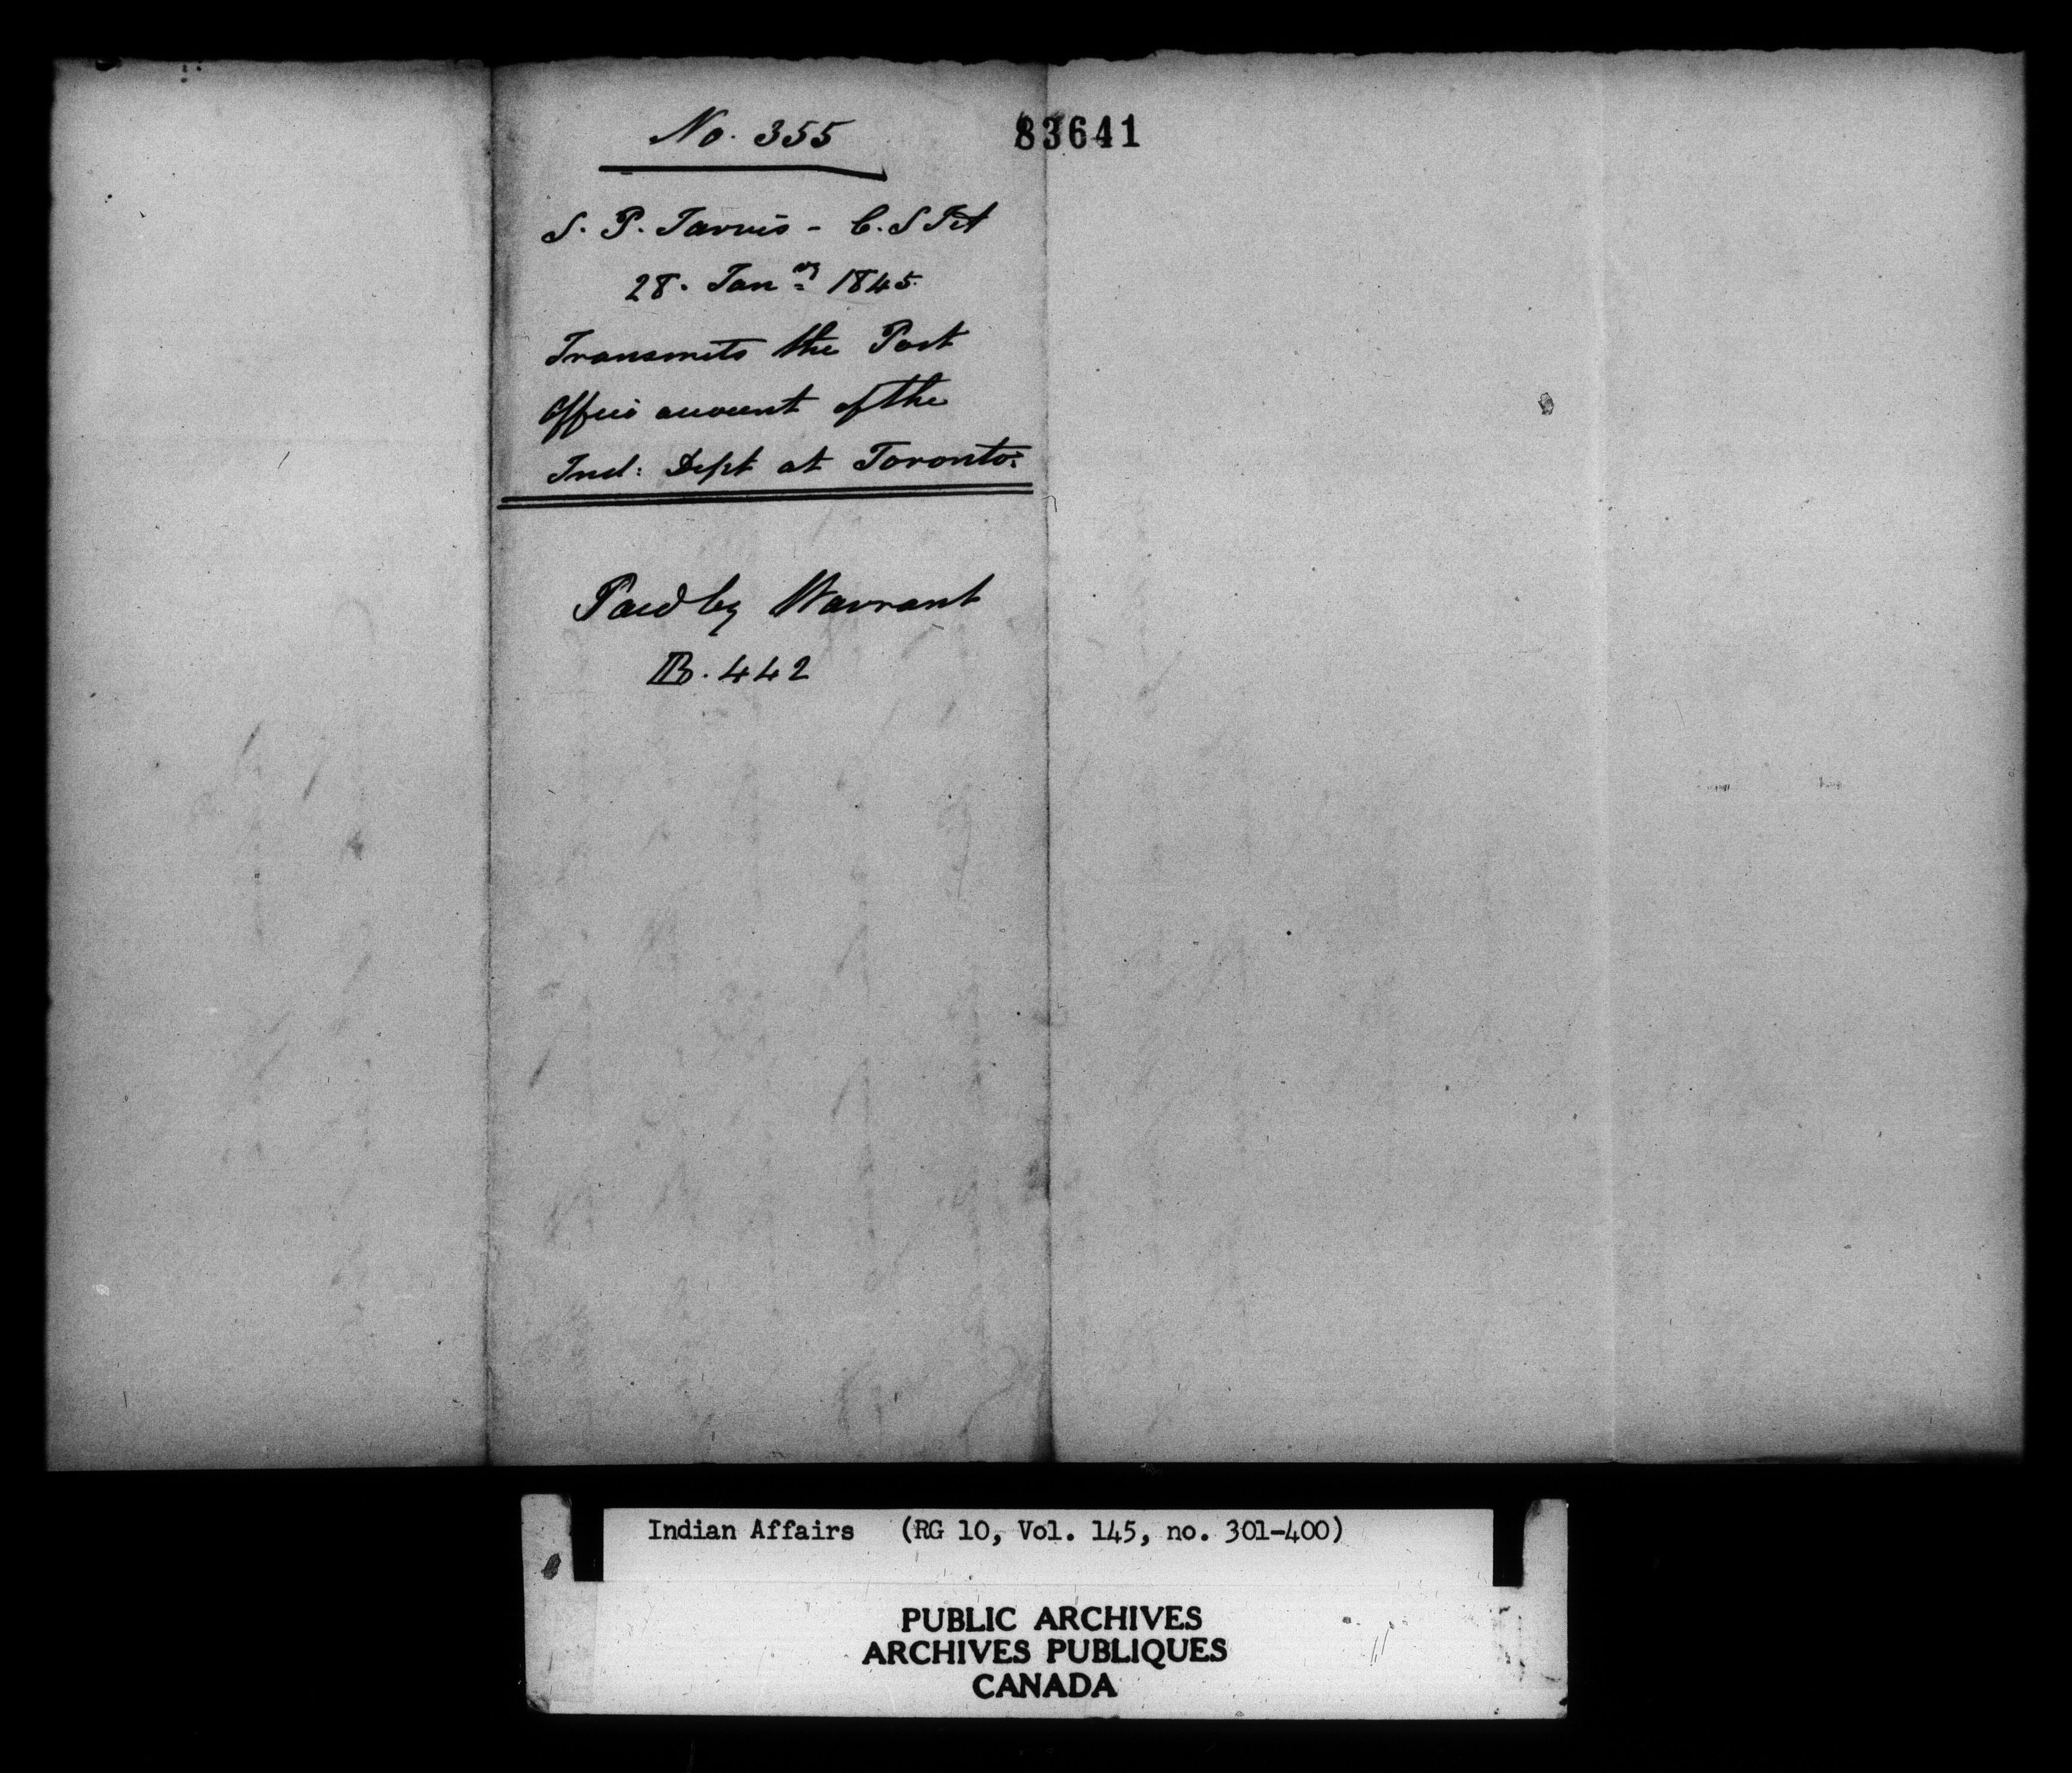 No. 355
83641
S. P. Jarvis - C. S I A
28. Jan.ry 1845.
Transmits the Post
Office account of the
Ind: Dept at Toronto:
Paid by Warrant
B. 442
Indian Affairs (RG 10, Vol. 145, no. 301-400)
PUBLIC ARCHIVES
ARCHIVES PUBLIQUES
CANADA